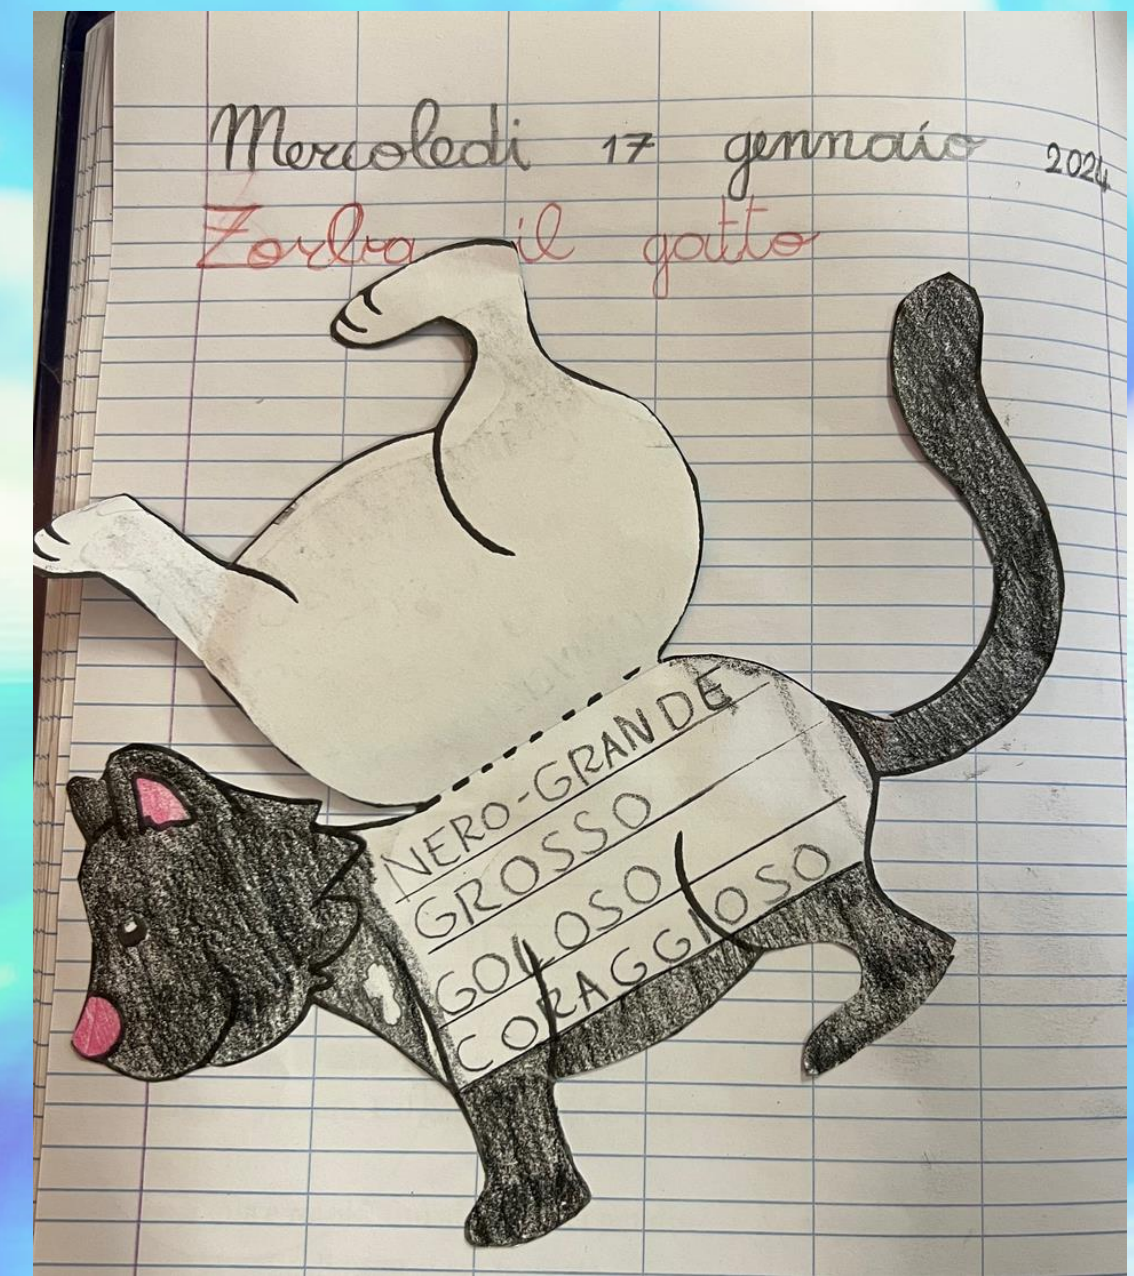 Mercoledi 17 gennaio 2024
Zorba il gatto
NERO-GRANDE
GROSSO
GOLOSO
CORAGGIOSO